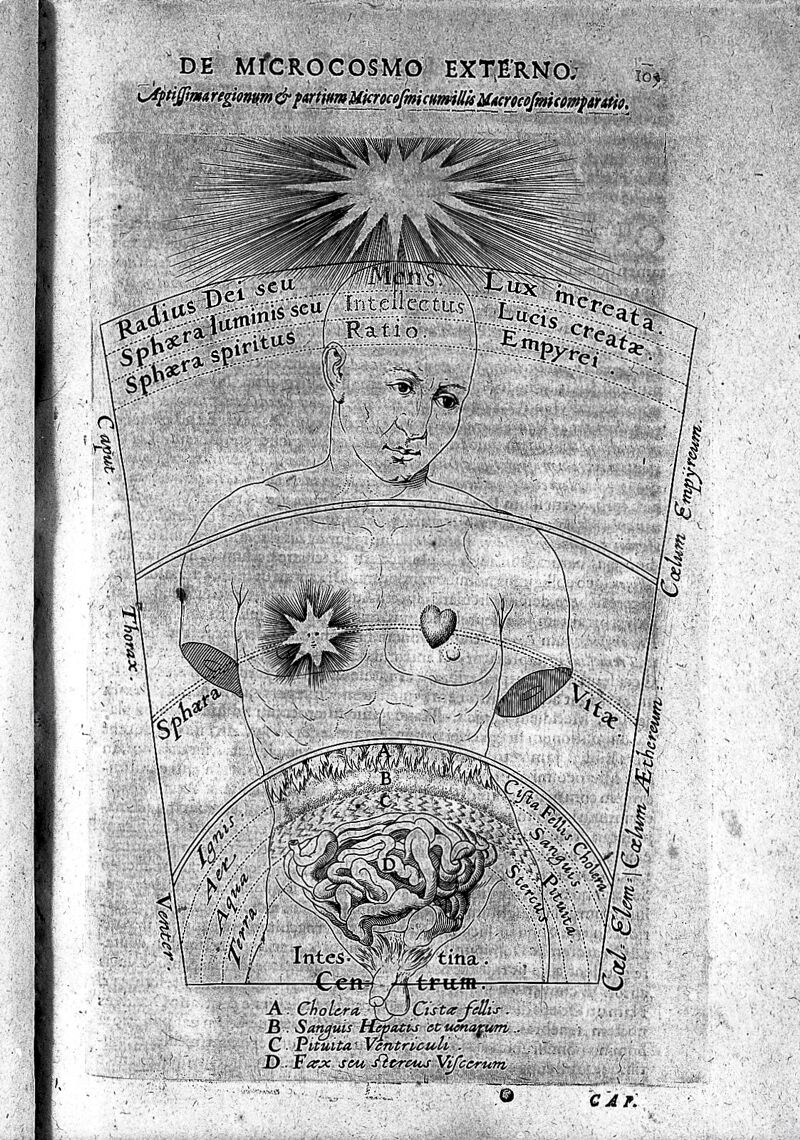 DE MICROCOSMO EXTERNO.
105
Aptissima regionum & partium Microcosmi cum illis Macrocosmi comparatio.
Radius Dei seu Mens. Lux increata.
Sphæra luminis seu Intellectus Lucis creatæ.
Sphæra spiritus Ratio. Empyrei
Caput.
Cœlum Empyreum.
Thorax.
Sphæra Vitæ
Cœlum Æthereum.
A
B
C
D
Ignis.
Aer
Aqua
Terra
Cista Fellis Cholera
Sanguis
Pituita.
Stercus
Venter.
Cœl. Elem
Intes- tina.
Cen- trum.
A. Cholera Cistæ fellis.
B. Sanguis Hepatis et uenarum.
C. Pituita Ventriculi.
D. Fæx seu stercus Viscerum
CAP.